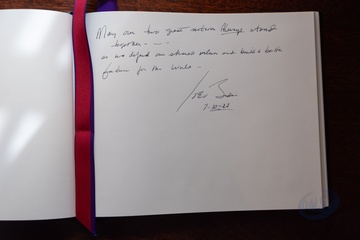 May our two great nations always stand
together - - -
as we defend our shared values and build a better
future for the world -
Joe Biden
7-10-22